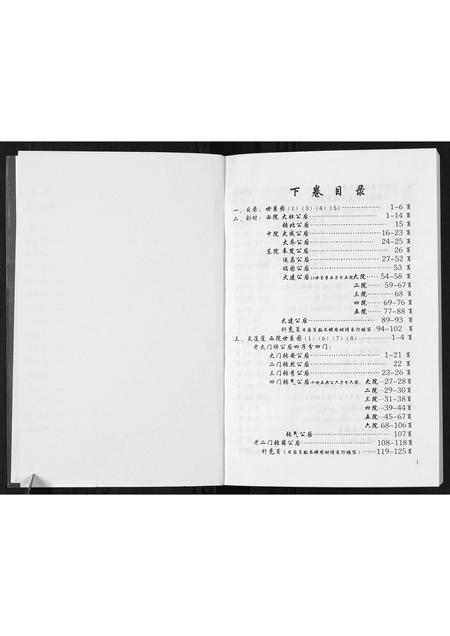 下卷目录
一、目录：世系图(1)(3)(4)(5)………1-6 页
二、刘村：西院 大柱公后………1-14 页
德北公后………15 页
中院 大成公后………16-23 页
大乔公后………24-25 页
东院 奉楚公后………26 页
运昌公后………27-52 页
瑞图公后………53 页
大建公后 大院………54-58 页
二院………59-67 页
三院………68 页
四院………69-76 页
五院………77-88 页
大建公后………89-93 页
补充页 94-102 页
西院世系图(1)(6)(7)(8)………1-4 页
老大门 公后四子分四门：
大门 安公后………1-21 页
二门 然公后………22 页
三门 秀公后………23-26 页
四门 气公后 大院…27-28页
二院…29-30页
三院…31-38页
四院…39-44页
五院…45-67页
六院 68-106页
气公后………107页
老二门 公后………108-118页
补充页 ……119-125页
1